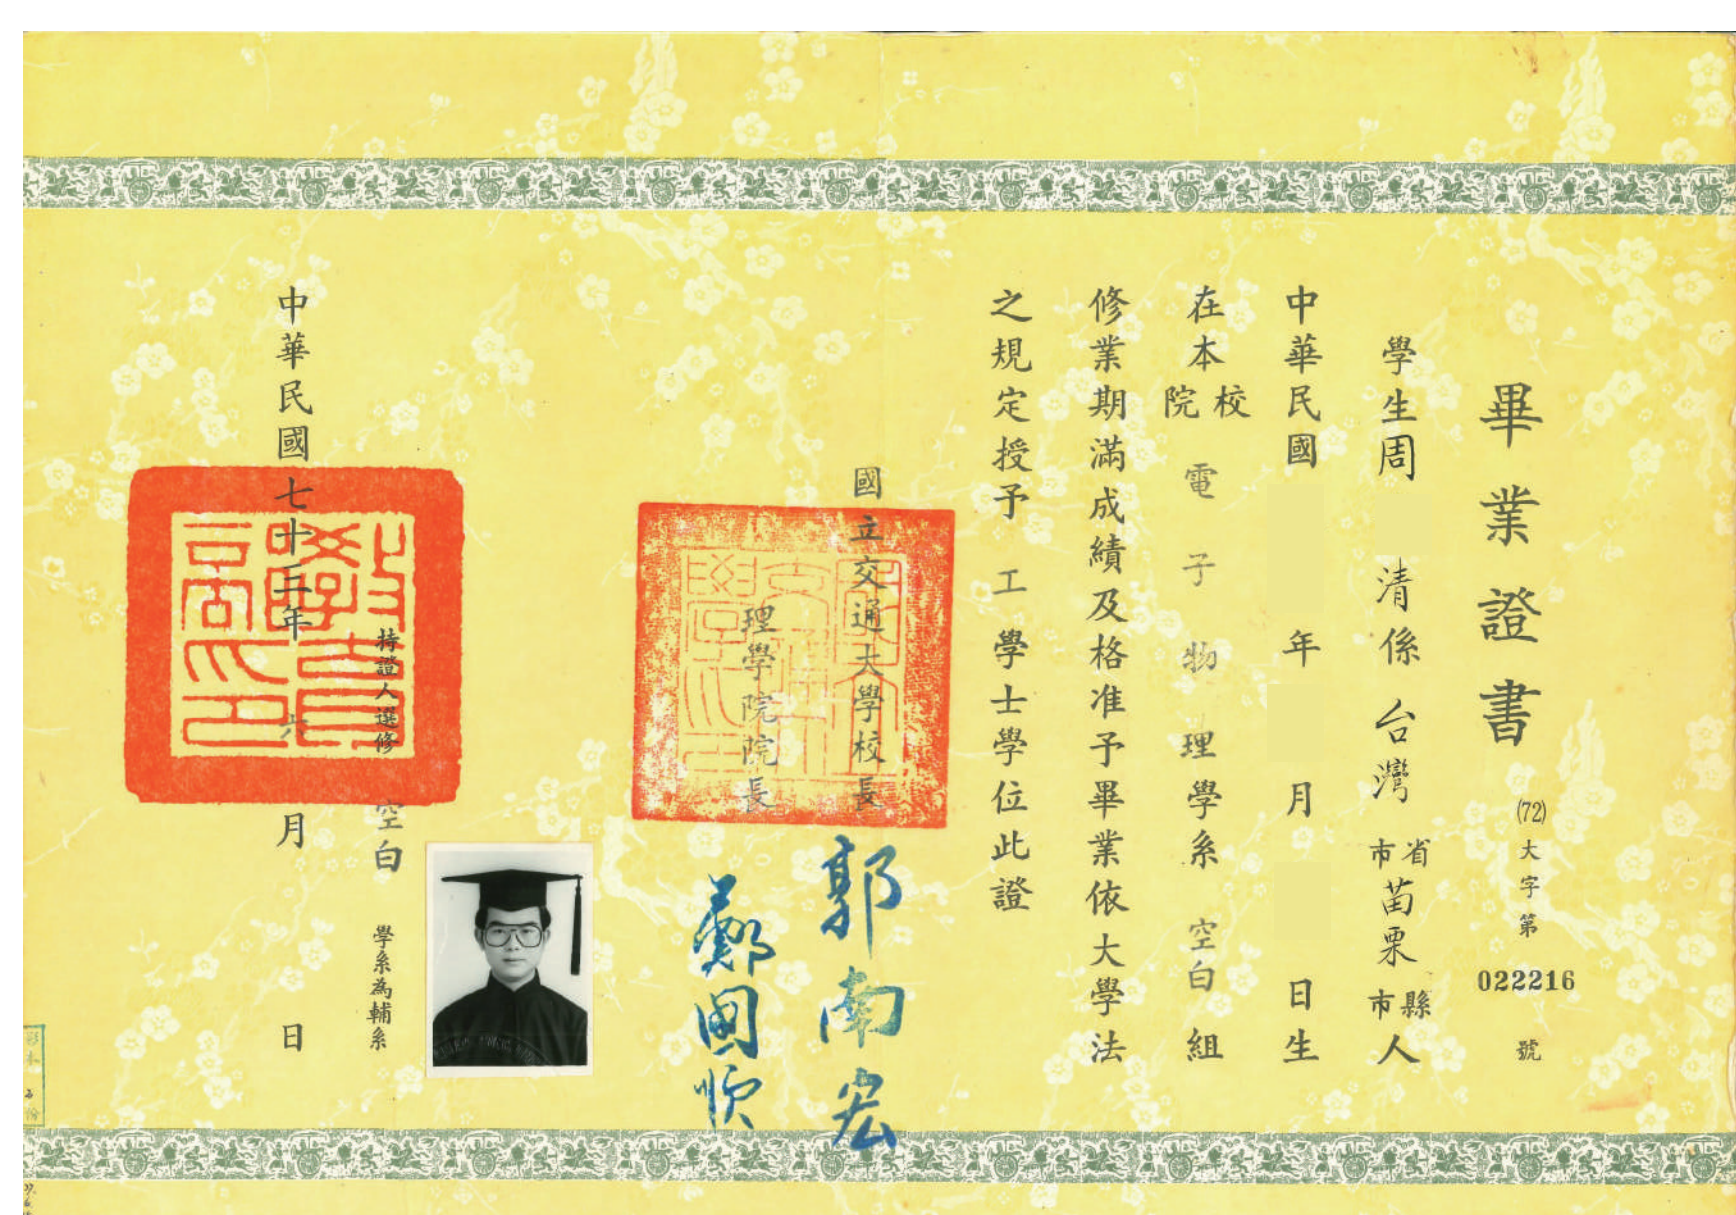 畢業證書
(72)大字第022216號
學生周 清係台灣省市苗栗縣市人
中華民國 年 月 日生
在本校院電子物理學系空白組
修業期滿成績及格准予畢業依大學法
之規定授予工學士學位此證
國立交通大學校長郭南宏
理學院院長鄭國順
持證人選修空白學系為輔系
中華民國七十三年六月 日
教育部印
影本